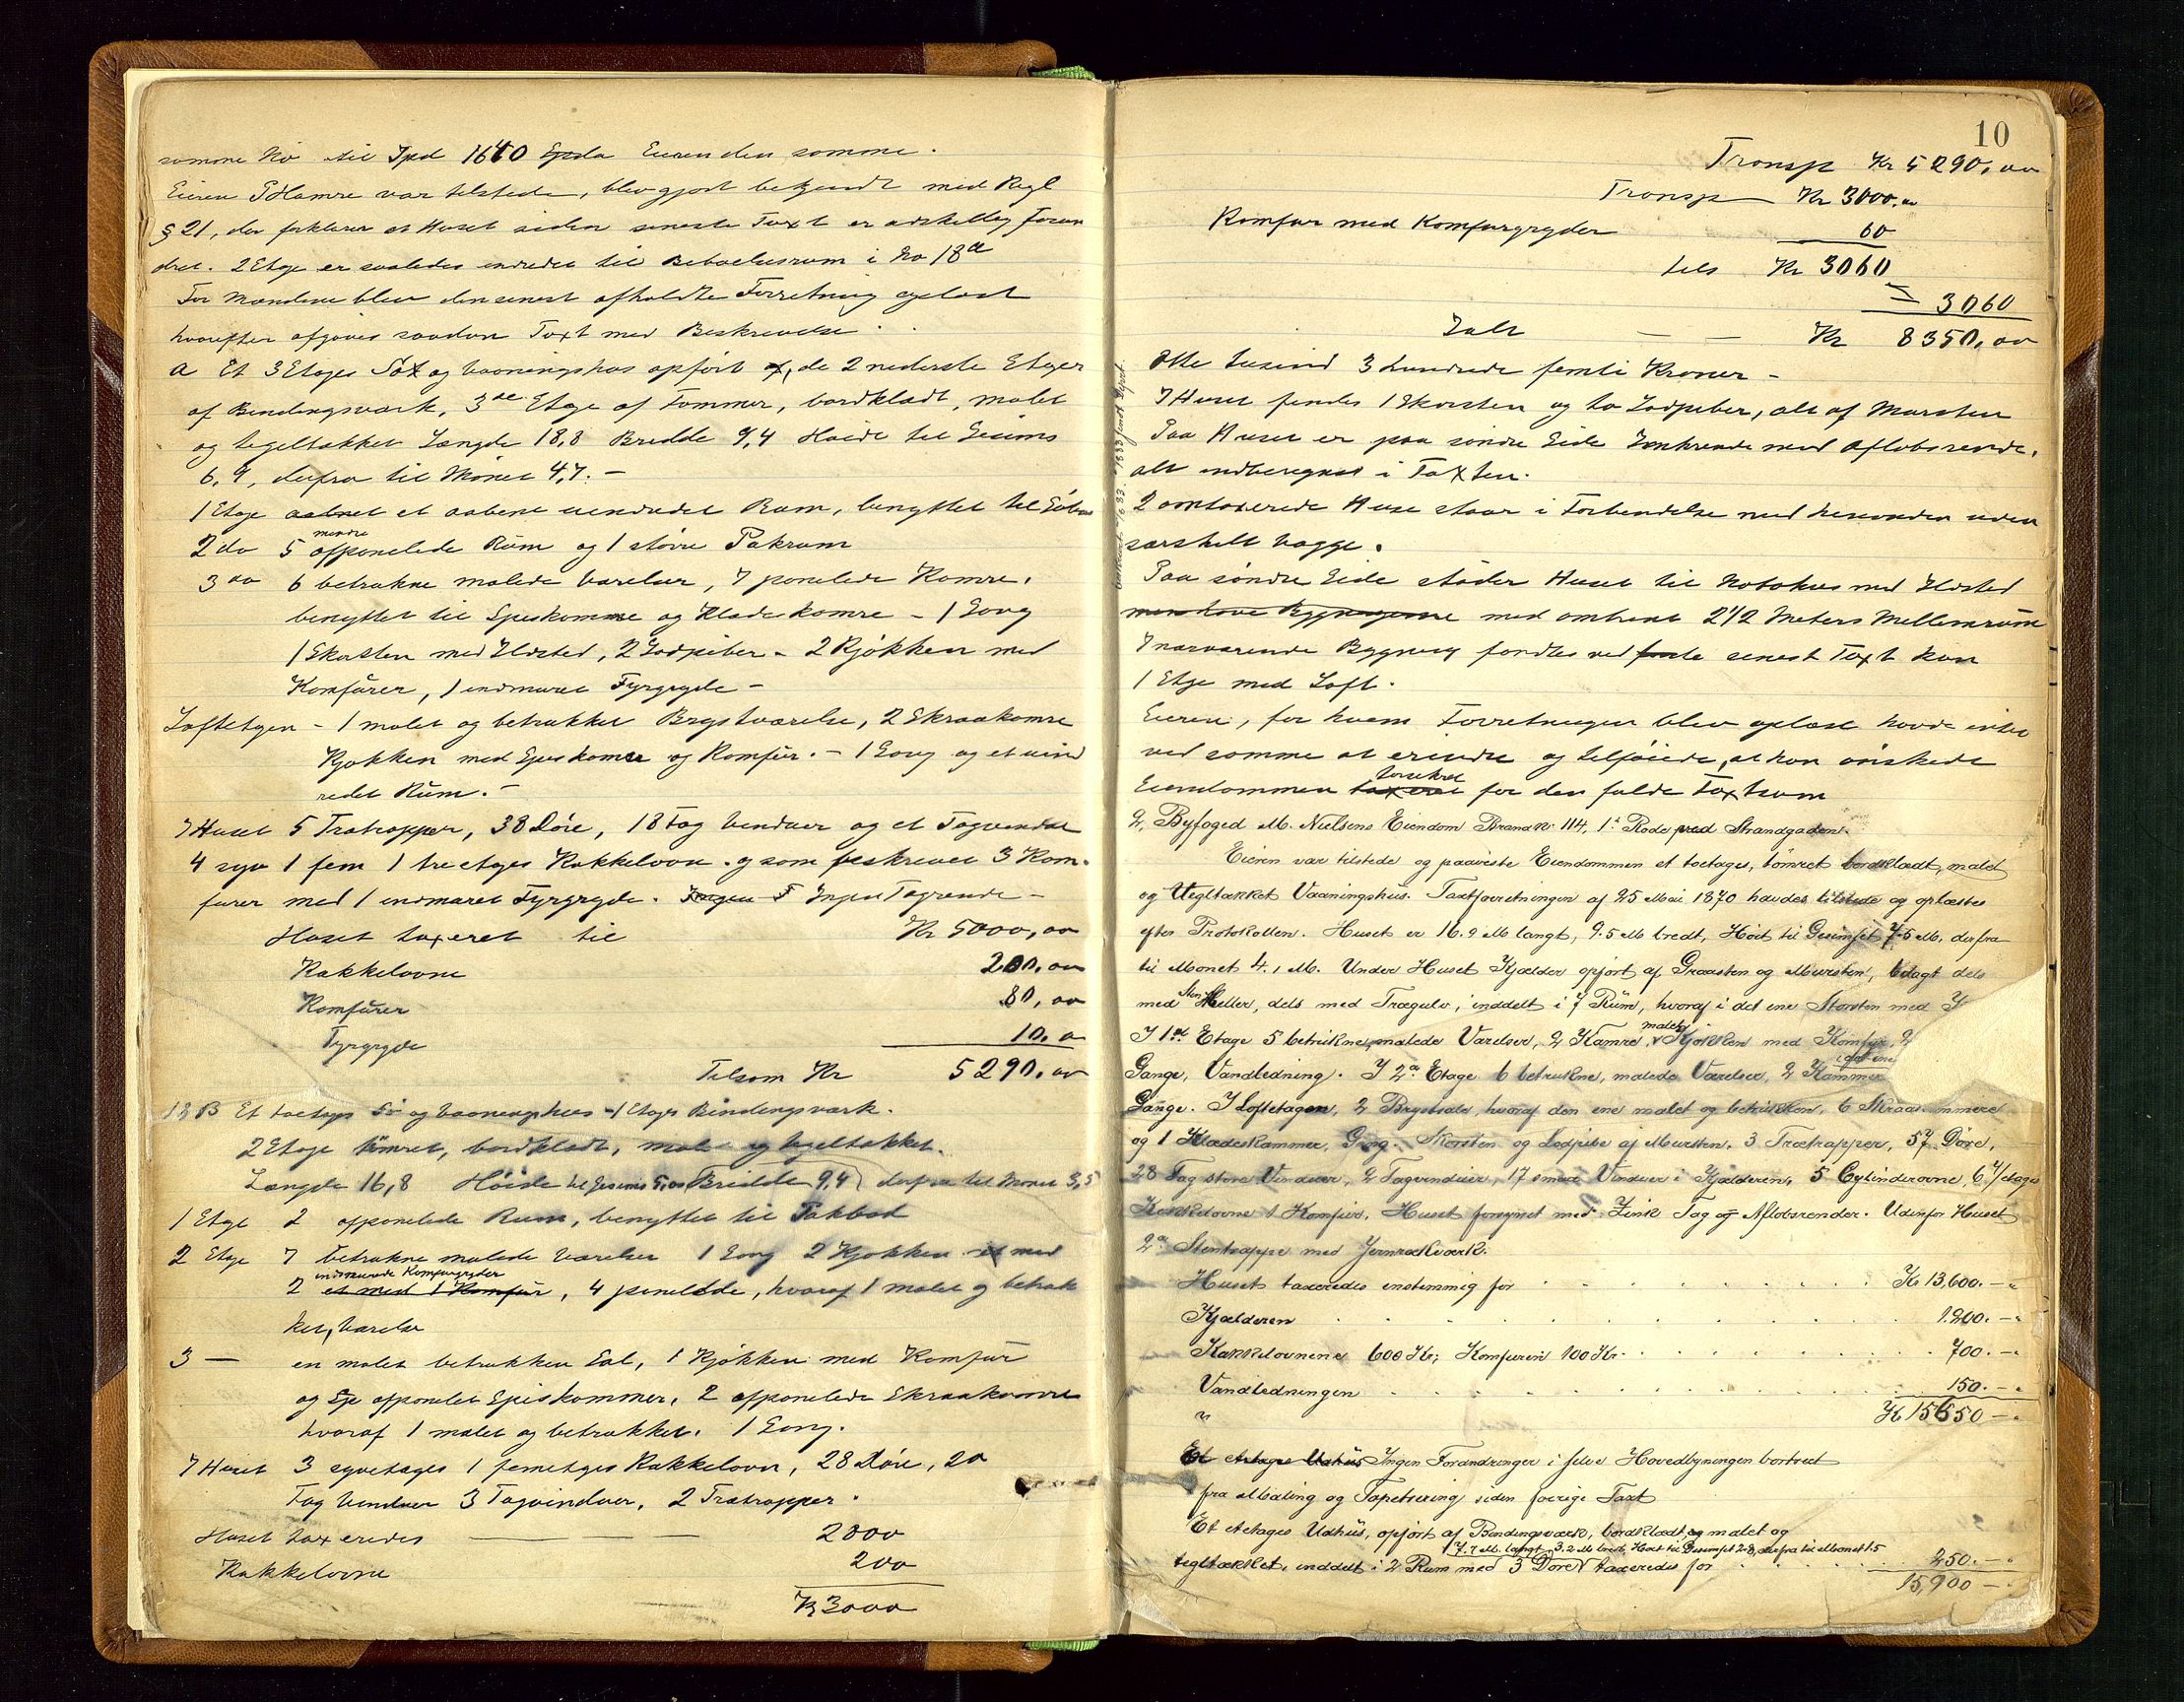 samme No til Spd 1640 Eieren den samme.
Eieren P Hamre var tilstede, blev gjort bekjendt med Regl
§ 21, der forklarer at Huset siden seneste Taxt er adskillig foran
dret. 2 Etage er saaledes endret til Beboelsesrum i No 18a
For Mændene blev den senest afholdte Forretning oplæst
hvorefter afgaves saadan Taxt med Beskrivelse.
a Et 3 Etages Sø og Vaaningshus opført af, de 2 nederste Etager
af Bindingsværk, 3de Etage af Tømmer, bordklædt, malet
og tegeltækket Længde 18,8 Bredde 9,4 Høide til Gesims
6,9, derfra til Mønet 4,7. –
1 Etage et aabent uendredet Rum, benyttet til Søbod
2 do 5 mindre afpanelede Rum og 1 større Pakrum
3 do 6 betrukne malede Værelser, 7 panelede Kamre,
benyttet til Speiskamre og Klædekamre – 1 Gang
1 Skorsten med Ildsted, 2 Lodpiber – 2 Kjøkken med
Komfurer, 1 indmuret Fyrgryde –
Loftetagen – 1 malet og betrukket Brystværelse, 2 Skraakamre
Kjøkken med Speiskamer og Komfur. – 1 Gang og et uind
redet Rum. –
I Huset 5 Trætrapper, 38 Døre, 18 Fag Vinduer og et Tagvindue
4 syv 1 fem 1 tre etages Kakkelovn og som beskrevet 3 Kom-
furer med 1 indmuret Fyrgryde. Ingen Tagrende –
Huset taxeret til Kr 5000,00
Kakkelovne 200,00
Komfurer 80,00
Fyrgryde 10,0
Tilsam Kr 5290,00
18 B Et toetages Sø og Vaaningshus – 1 Etages Bindingsværk.
2 Etage tømret, bordklædt, malet og tegeltækket.
Længde 16,8 Høide til Gesims 5,00 Bredde 9,4 derfra til Mønet 3,5
1 Etage 2 afpanelede Rum, benyttet til Pakbod
2 Etage 7 betrukne malede Værelser 1 Gang 2 Kjøkken med
2 indmurede Komfurgryder, 4 panelede, hvoraf 1 malet og betruk
ket, Værelse
3 — en malet betrukken Sal, 1 Kjøkken med Komfur
og afpanelet Speiskammer, 2 afpanelede Skraakamre
hvoraf 1 malet og betrukket. 1 Gang.
I Huset 3 syvetages 1 femetages Kakkelovn, 28 Døre, 20
Fag Vinduer 3 Tagvinduer, 2 Trætrapper.
Huset taxeredes — — 2800
Kakkelovne 200
Kr 3000
10
Transp Kr 5290,00
Transp Kr 3000.00
Komfur med Komfurgryder 60
tils Kr 3060
= 3060
Ialt — — Kr 8350,00
Otte tusind 3 hundrede femti Kroner –
I Huset findes 1 Skorsten og to Lodpiber, alt af Mursten
Paa Huset er paa søndre Side Zinkrende med Afløbsrende,
alt indberegnet i Taxten.
2 omtaxerede Huse staar i Forbindelse med hinanden uden
særskilt Vægge.
Paa søndre Side støder Huset til Nabohus med Ildsted
med omtrent 2 1/2 Meters Mellemrum
I nærværende Bygning fandtes ved senest Taxt kun
1 Etage med Loft.
Eieren, for hvem Forretningen blev oplæst havde intet
ved samme at erindre og tilføiede, at han ønskede
Eiendommen forsikret for den fulde Taxtsum
2, Byfoged M. Nielsens Eiendom Brandn: 114, 1ste Rode ved Strandgaden.
Eieren var tilstede og paaviste Eiendommen et toetages, tømret bordklædt, malet
og tegltækket Vaaningshus. Taxtforretningen af 25 Mai 1870 havdes tilstede og oplæstes
efter Protokollen. Huset er 16.9 M langt, 9.5 M bredt, Høit til Gesimset 7.5 M, derfra
til Mønet 4.1 M. Under Huset Kjælder opført af Graasten og Mursten, belagt dels
med Sten Heller, dels med Trægulv, inddelt i 7 Rum, hvoraf i det ene Skorsten med
I 1ste Etage 5 betrukne, malede Værelser, 2 Kamre, malet Kjøkken med Komfur, 2
Gange, Vandledning. I 2den Etage 6 betrukne, malede Værelser, 2 Kammer
Gange. I Loftetagen, 2 Brystsale, hvoraf den ene malet og betrukken, 6 Skraakammere
og 1 Klædeskammer, Gang. Skorsten og Lodpibe af Mursten. 3 Trætrapper, 57 Døre,
28 Fag store Vinduer, 2 Tagvinduer, 17 smaa Vinduer i Kjælderen, 5 Cylinderovne, 6 4/etages
Kakkelovne 1 Komfur. Huset forsynet med Zink Tag og Afløbsrender. Udenfor Huset
2de Stentrappe med Jernrækværk.
Huset taxeredes enstemmig for Kr 13,600. – "
Kjælderen 1.200. – "
Kakkelovnene 600 Kr; Komfuren 100 Kr. 700. – "
Vandledningen 150. – "
Kr 15650 – "
Ingen Forandringer i selve Hovedbygningen bortseet
fra Maling og Tapetsering siden forrige Taxt
Et etetages Udhus, opført af Bindingsværk, bordklædt, malet og
7.7 M. langt 3.2 M bred, Høit til Gesimset 2.8, derfra til Mønet 1.5
tegltækket, inddelt i 2 Rum med 3 Døre taxeredes for 250. – "
15,900 – "